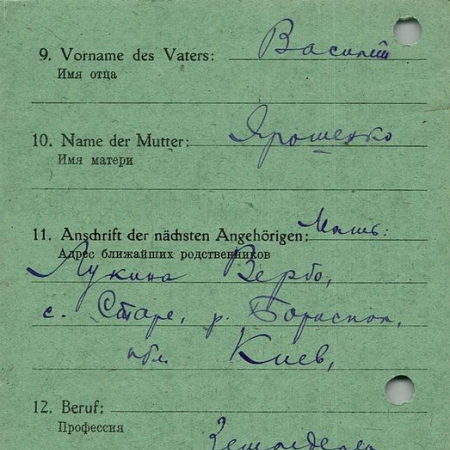 9. Vorname des Vaters: Василий
Имя отца
10. Name der Mutter: Ярошенко
Имя матери
11. Anschrift der nächsten Angehörigen: Мать:
Адрес ближайших родственников
Лукина Вербо,
с. Старе, р. Бориспол,
обл. Киев,
12. Beruf:
Профессия
Земледелец